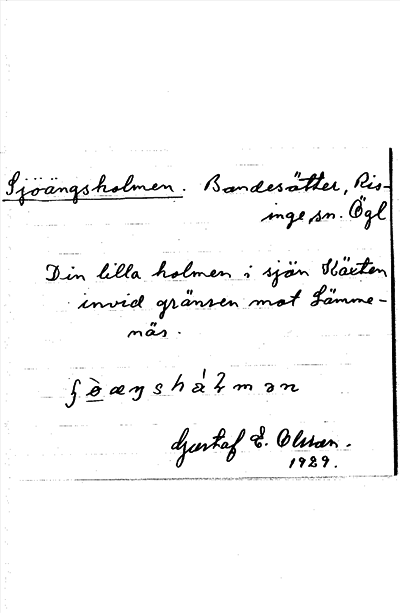 Sjöängsholmen. Bandesätter, Ris-
inge sn. Ögl
Din lilla holmen i sjön
invid gränsen mot Lämme-
näs.
Gustaf E. Olsson.
1929.